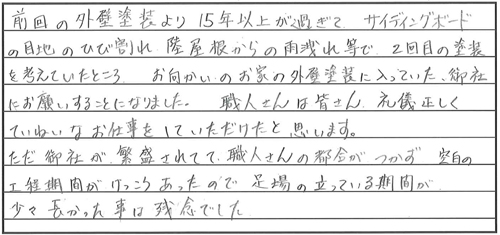 前回の外壁塗装より15年以上が過ぎて、サイディングボード
の目地のひび割れ、陸屋根からの雨洩れ等で、2回目の塗装
を考えていたところ お向かいのお家の外壁塗装に入っていた、御社
にお願いすることになりました。 職人さんは皆さん、礼儀正しく
ていねいなお仕事をしていただけたと思います。
ただ御社が、繁盛されてて、職人さんの都合がつかず 空白の
工程期間がけっこうあったので 足場の立っている期間が
少々長かった事は残念でした